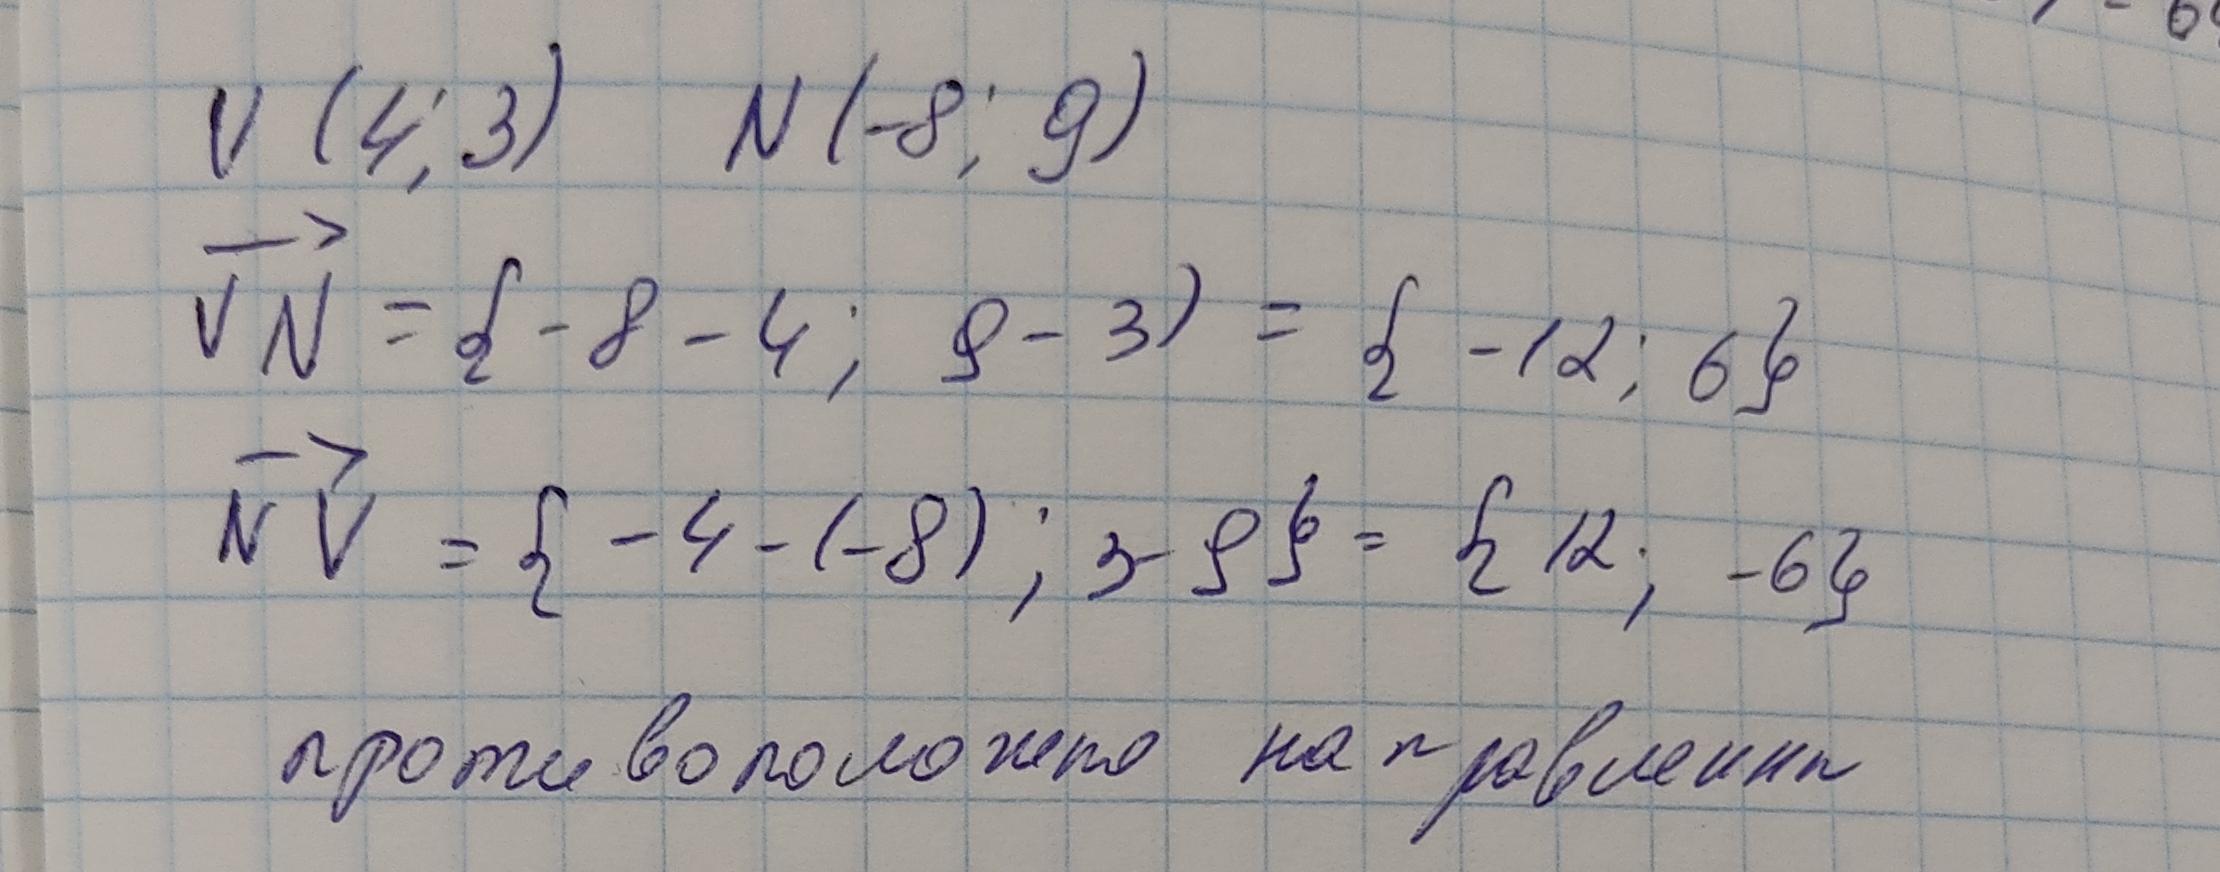 V (4; 3) N (-8; 9)
VN = { -8 - 4; 9 - 3) = { -12; 6}
NV = { -4 - (-8); 3 - 9} = { 12; -6}
противоположно направленны